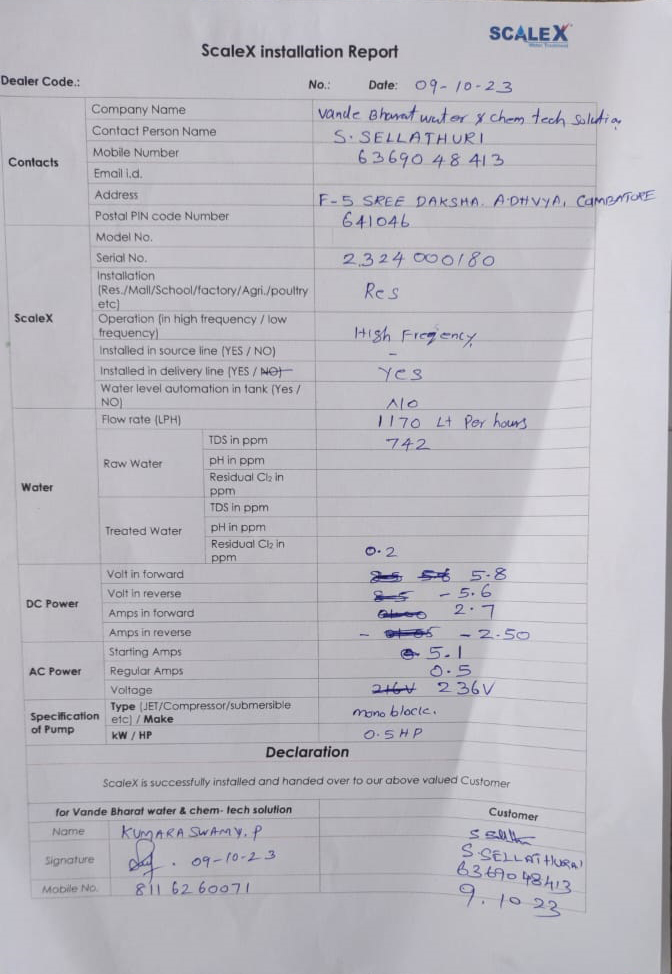 SCALEX
Water Treatment
ScaleX installation Report
Dealer Code.: No.: Date: 09-10-23
Contacts
Company Name Vande Bharat water & chem tech Solution
Contact Person Name S. SELLATHURI
Mobile Number 63690 48 413
Email i.d.
Address F-5 SREE DAKSHA. ADHVYA, COMBATORE
Postal PIN code Number 641046
ScaleX
Model No.
Serial No. 2324 000180
Installation (Res./Mall/School/factory/Agri./poultry etc) Res
Operation (in high frequency / low frequency) High Freqency
Installed in source line (YES / NO) -
Installed in delivery line (YES / NO) Yes
Water level automation in tank (Yes / NO) No
Water
Flow rate (LPH) 1170 Lt Per hours
Raw Water
TDS in ppm 742
pH in ppm
Residual Cl2 in ppm
Treated Water
TDS in ppm
pH in ppm
Residual Cl2 in ppm 0.2
DC Power
Volt in forward 5.8
Volt in reverse - 5.6
Amps in forward 2.7
Amps in reverse - - 2.50
AC Power
Starting Amps 5.1
Regular Amps 0.5
Voltage 216V 236V
Specification of Pump
Type (JET/Compressor/submersible etc) / Make mono block.
kW / HP 0.5 HP
Declaration
ScaleX is successfully installed and handed over to our above valued Customer
for Vande Bharat water & chem- tech solution Customer
Name KUMARA SWAMY. P
Signature 09-10-23
Mobile No. 811 62 60071
S SELLATHURAI
63690 48413
9. 10 23